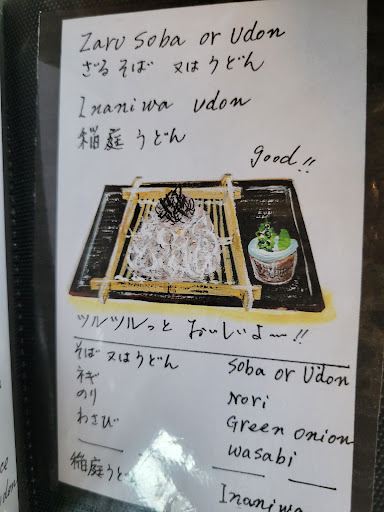 Zaru Soba or Udon
ざるそば 又はうどん
Inaniwa udon
稲庭うどん
good!!
ツルツルっと おいしいよ〜!!
そば 又はうどん
Soba or Udon
ネギ
Nori
のり
Green onion
わさび
wasabi
稲庭うど
Inaniwa